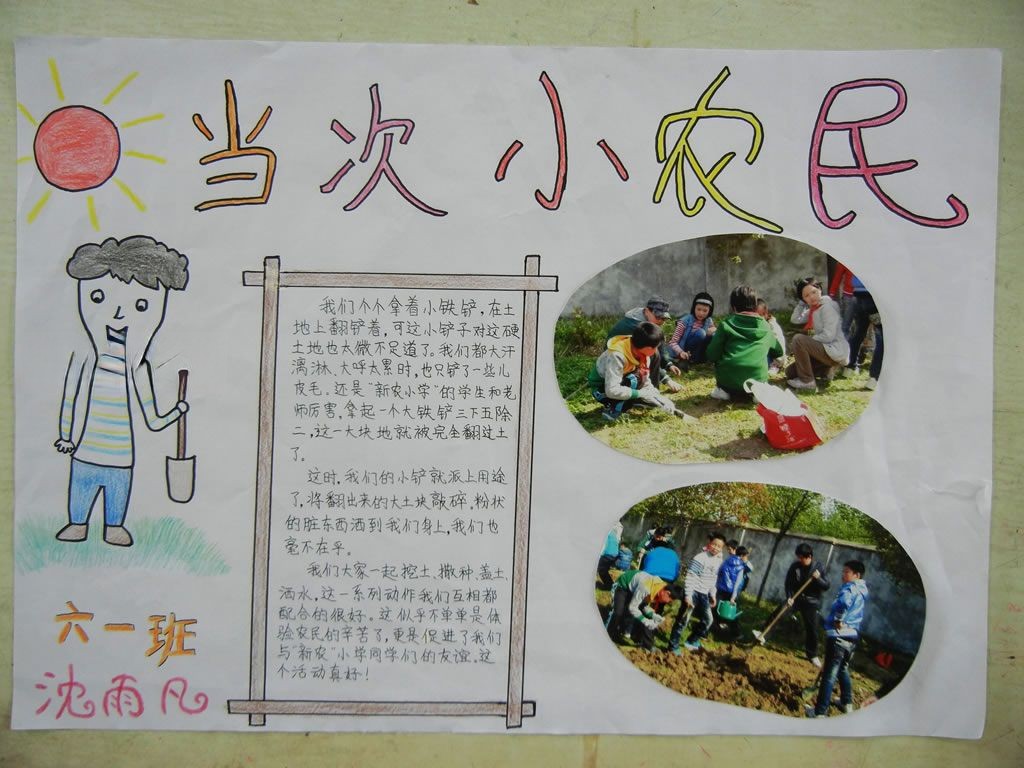 当次小农民
我们个个拿着小铁铲，在土
地上翻铲着，可这小铲子对这硬
土地也太微不足道了。我们都大汗
漓淋、大呼太累时，也只铲了一些儿
皮毛。还是“新农小学”的学生和老
师厉害，拿起一个大铁铲三下五除
二，这一大块地就被完全翻过土
了。
这时，我们的小铲就派上用途
了，将翻出来的大土块敲碎，粉状
的脏东西洒到我们身上，我们也
毫不在乎。
我们大家一起挖土、撒种、盖土、
洒水，这一系列动作我们互相都
配合的很好。这似乎不单单是体
验农民的辛苦了，更是促进了我们
与“新农”小学同学们的友谊。这
个活动真好！
六一班
沈雨凡